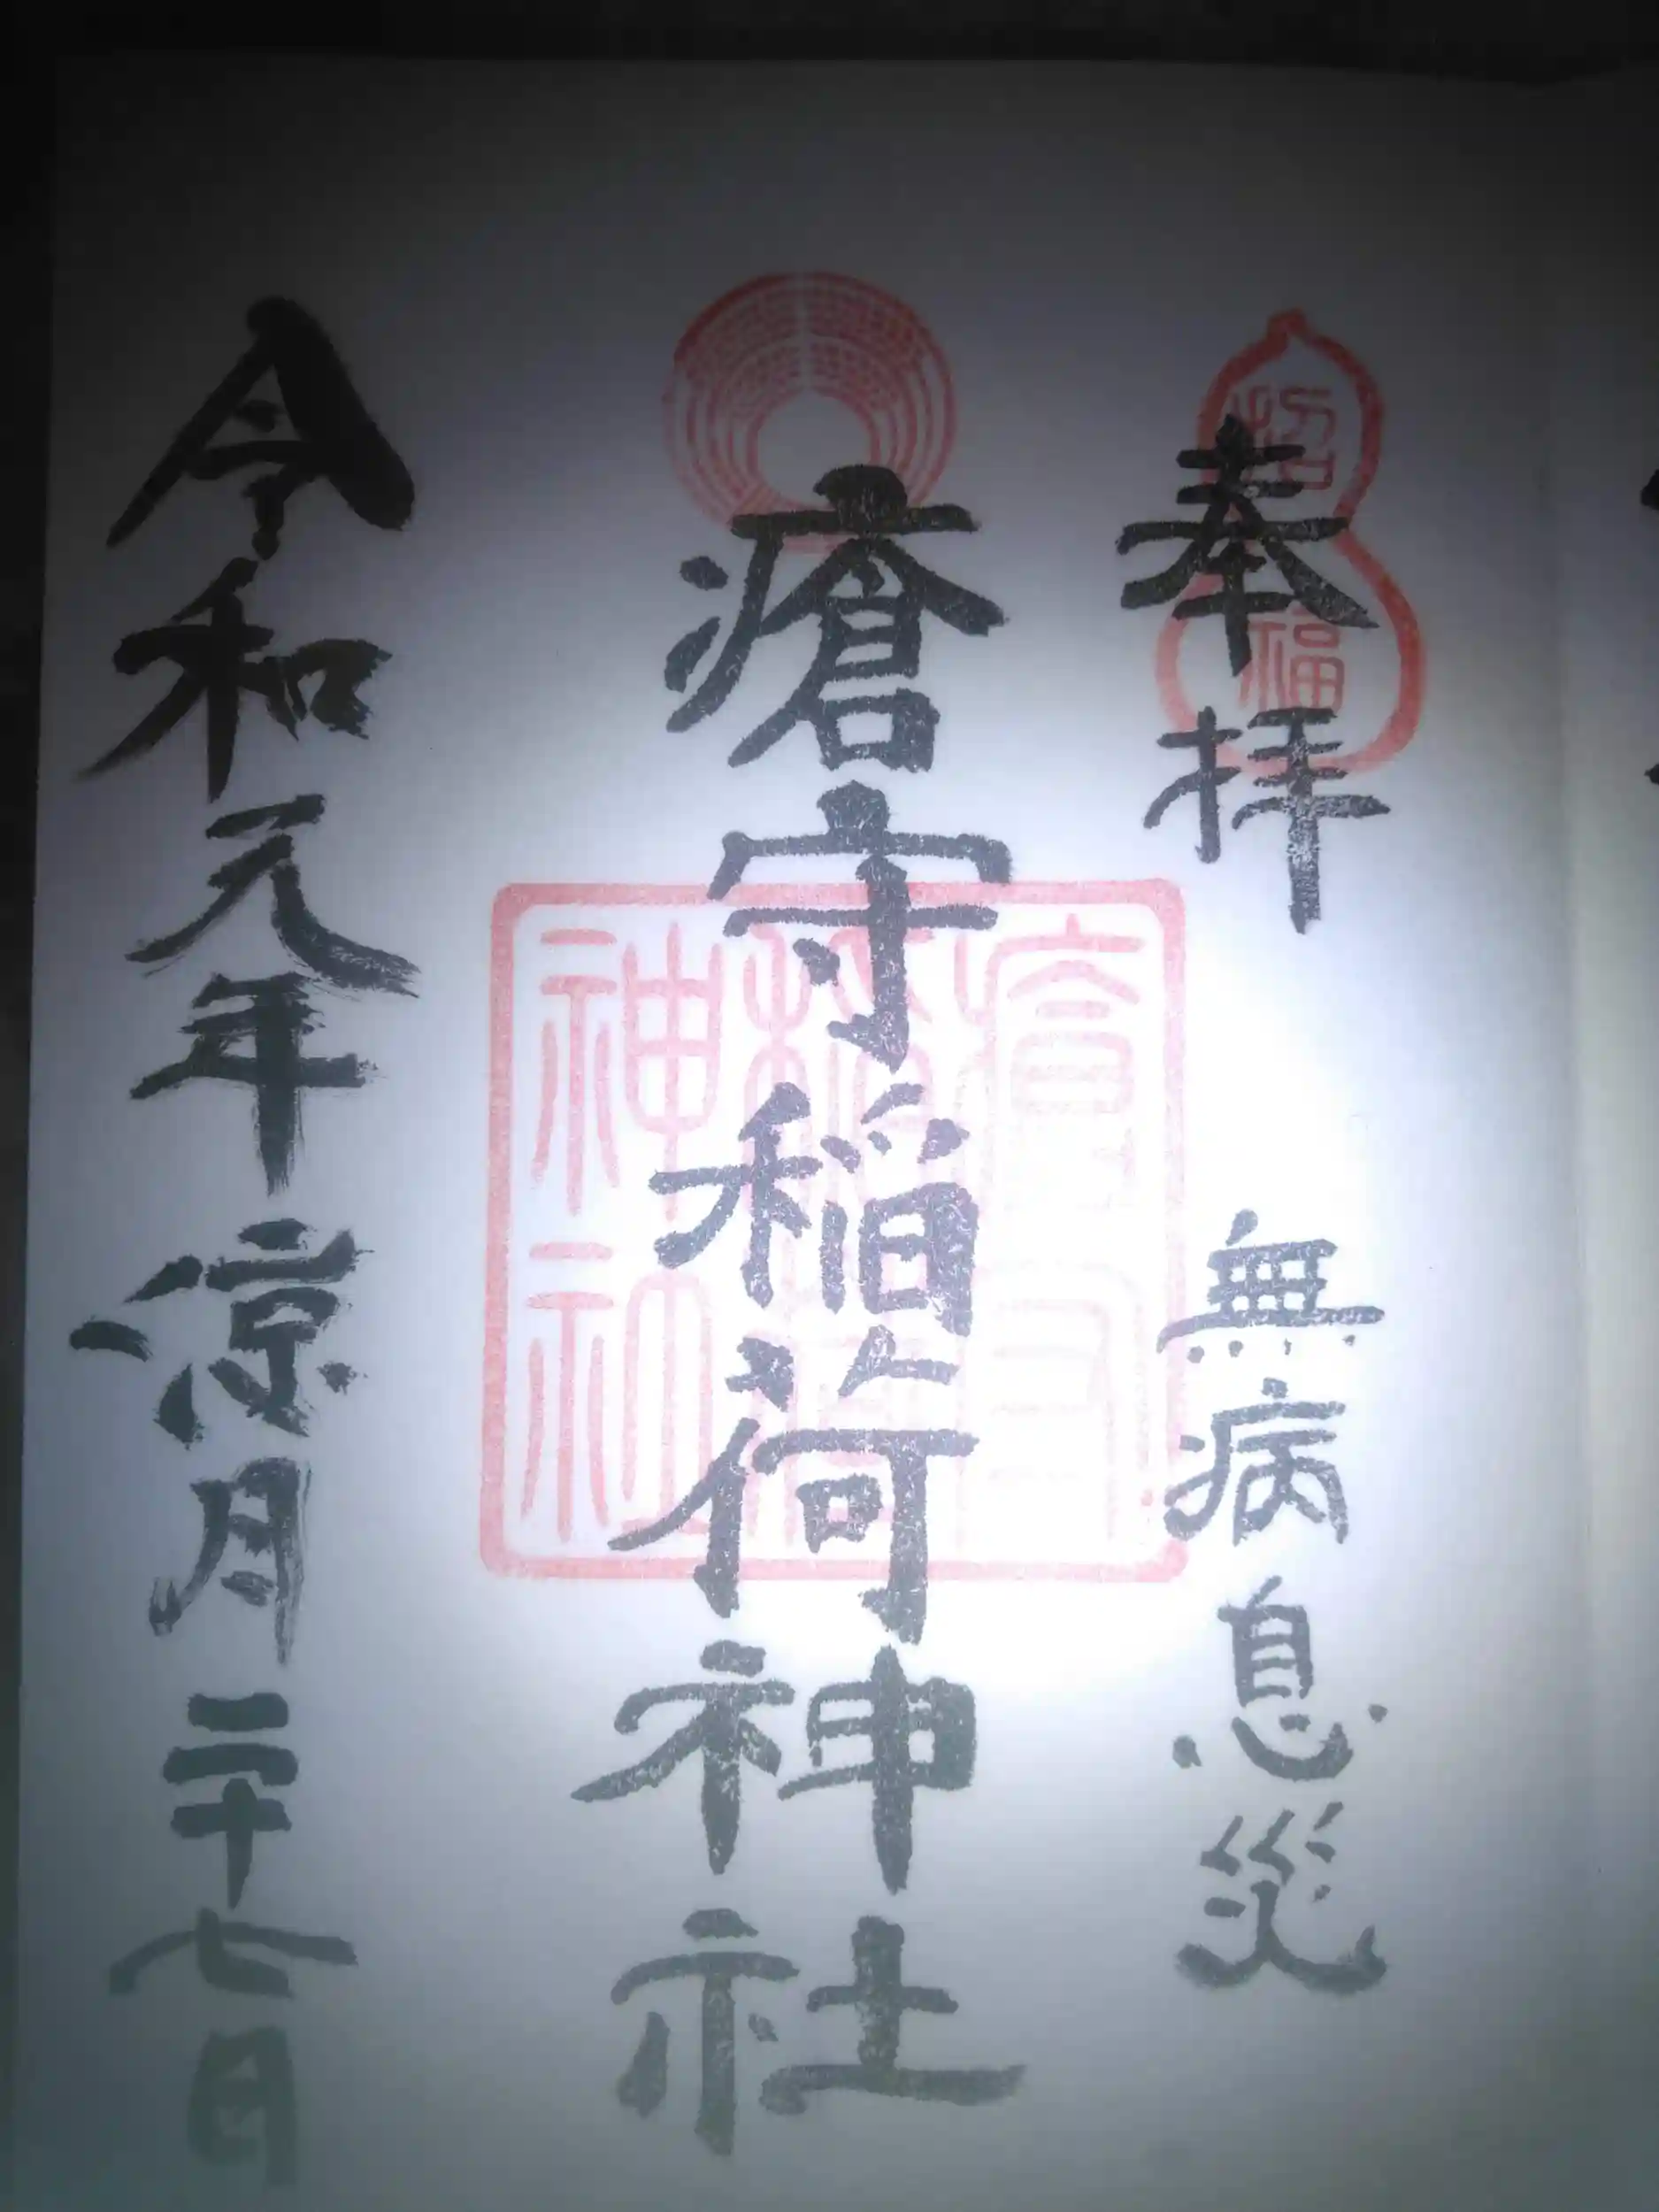 奉拝
無病息災
招福
瘡守稲荷神社
瘡守稲荷神社
令和元年 涼月 二十七日